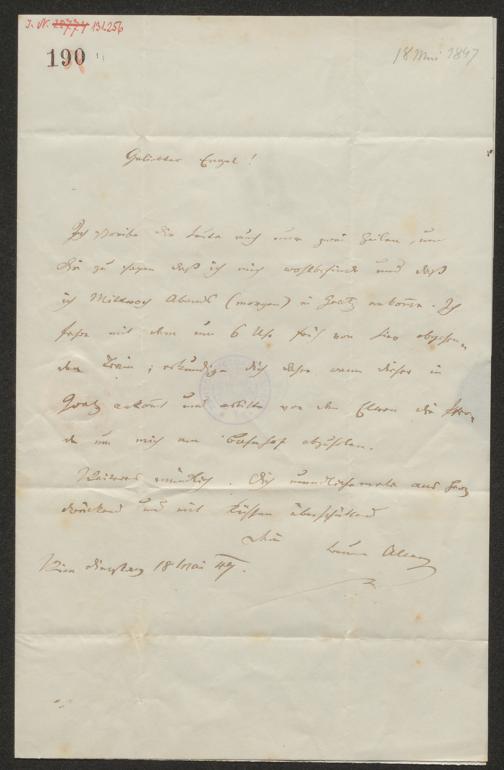 I. N. 131.256
190
18 Mai 1847
Geliebter Engel!
Ich schreibe dir heute nur zwei Zeilen, um
dir zu sagen daß ich mich wohlbefinde und daß
ich Mittwoch Abends (morgen) in Gratz ankomme. Ich
fahre mit dem um 6 Uhr früh von hier abgehen-
den Train; erkundige dich daher wann dieser in
Gratz ankommt und erbitte von den Eltern die
um mich am Bahnhof abzuholen.
mündlich. Dich unendlichemale ans Herz
drückend und mit Küssen überschüttend
Dein
Wien Dienstag 18 Mai 47.